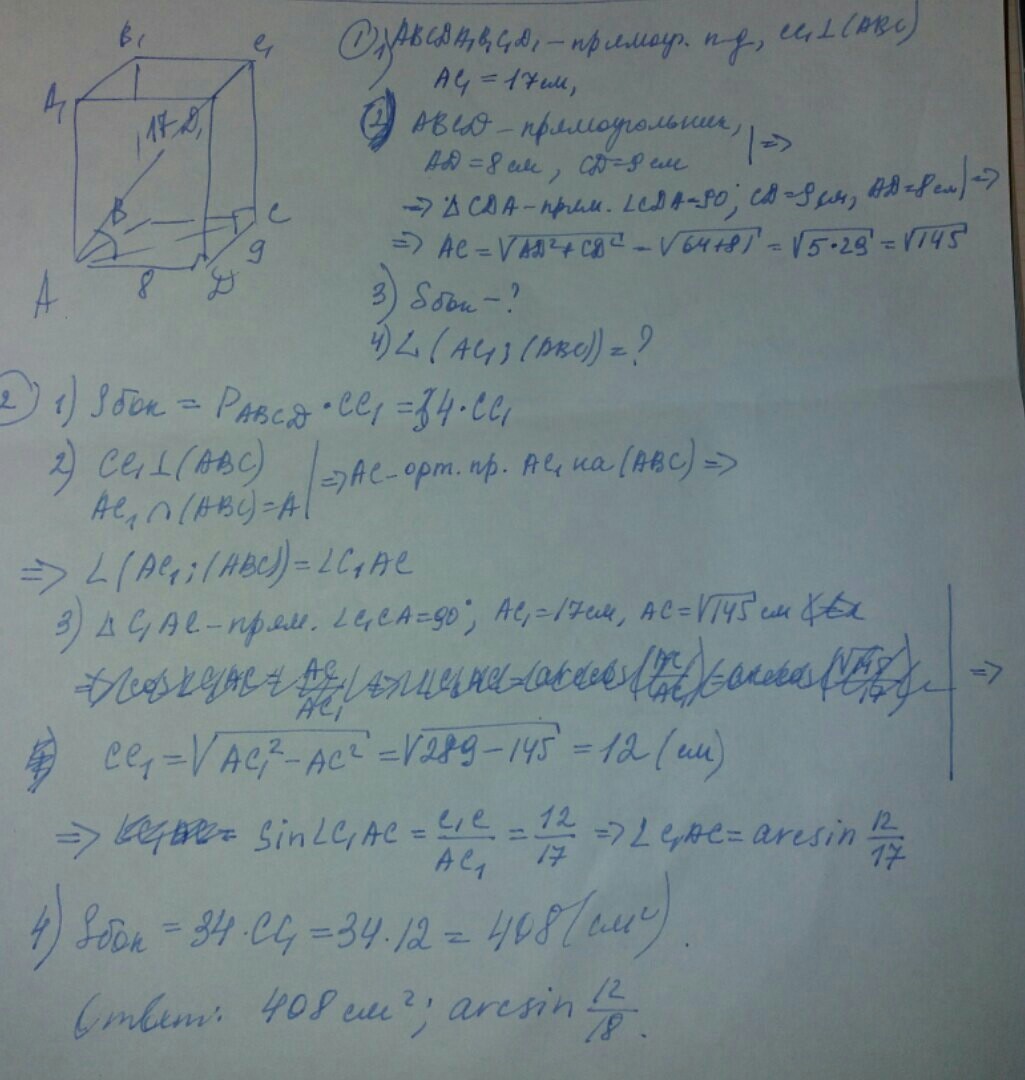 B₁
C₁
A₁
17
D₁
B
C
9
A
8
D
① 1) ABCDA₁B₁C₁D₁ – прямоуг. п-д, CC₁⊥(ABC)
AC₁ = 17 см,
2) ABCD – прямоугольник,
AD = 8 см, CD = 9 см | =>
=> ΔCDA – прям. ∠CDA=90°, CD=9 см, AD=8 см | =>
=> AC = √AD²+CD² = √64+81 = √5·29 = √145
3) Sбок – ?
4) ∠(AC₁; (ABC)) = ?
② 1) Sбок = P_ABCD · CC₁ = 34·CC₁
2) CC₁⊥(ABC)
AC₁∩(ABC)=A | => AC – орт. пр. AC₁ на (ABC) =>
=> ∠(AC₁; (ABC)) = ∠C₁AC
3) ΔC₁AC – прям. ∠C₁CA=90°, AC₁=17 см, AC=√145 см
=> cos∠C₁AC = AC/AC₁ => ∠C₁AC = arccos(AC/AC₁) = arccos(√145/17) | =>
CC₁ = √AC₁² – AC² = √289 – 145 = 12 (см)
=> ∠C₁AC = sin∠C₁AC = C₁C/AC₁ = 12/17 => ∠C₁AC = arcsin 12/17
4) Sбок = 34·CC₁ = 34·12 = 408 (см²).
Ответ: 408 см²; arcsin 12/18.